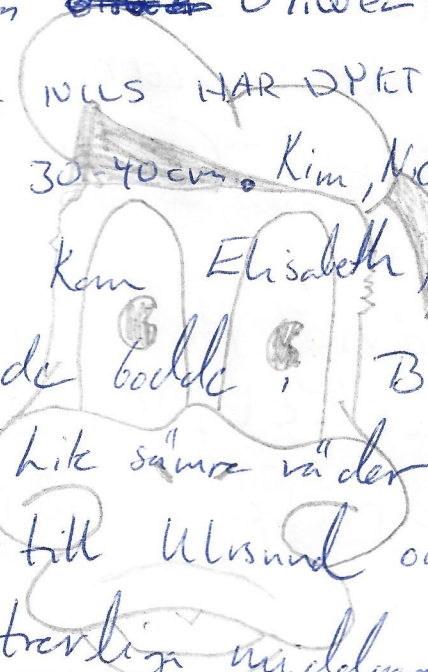 NILS HAR DYKT
30-40 cm. Kim,
Kom Elisabeth,
de bodde, B
hik sämre väder
till Ulvsund
trevliga middag